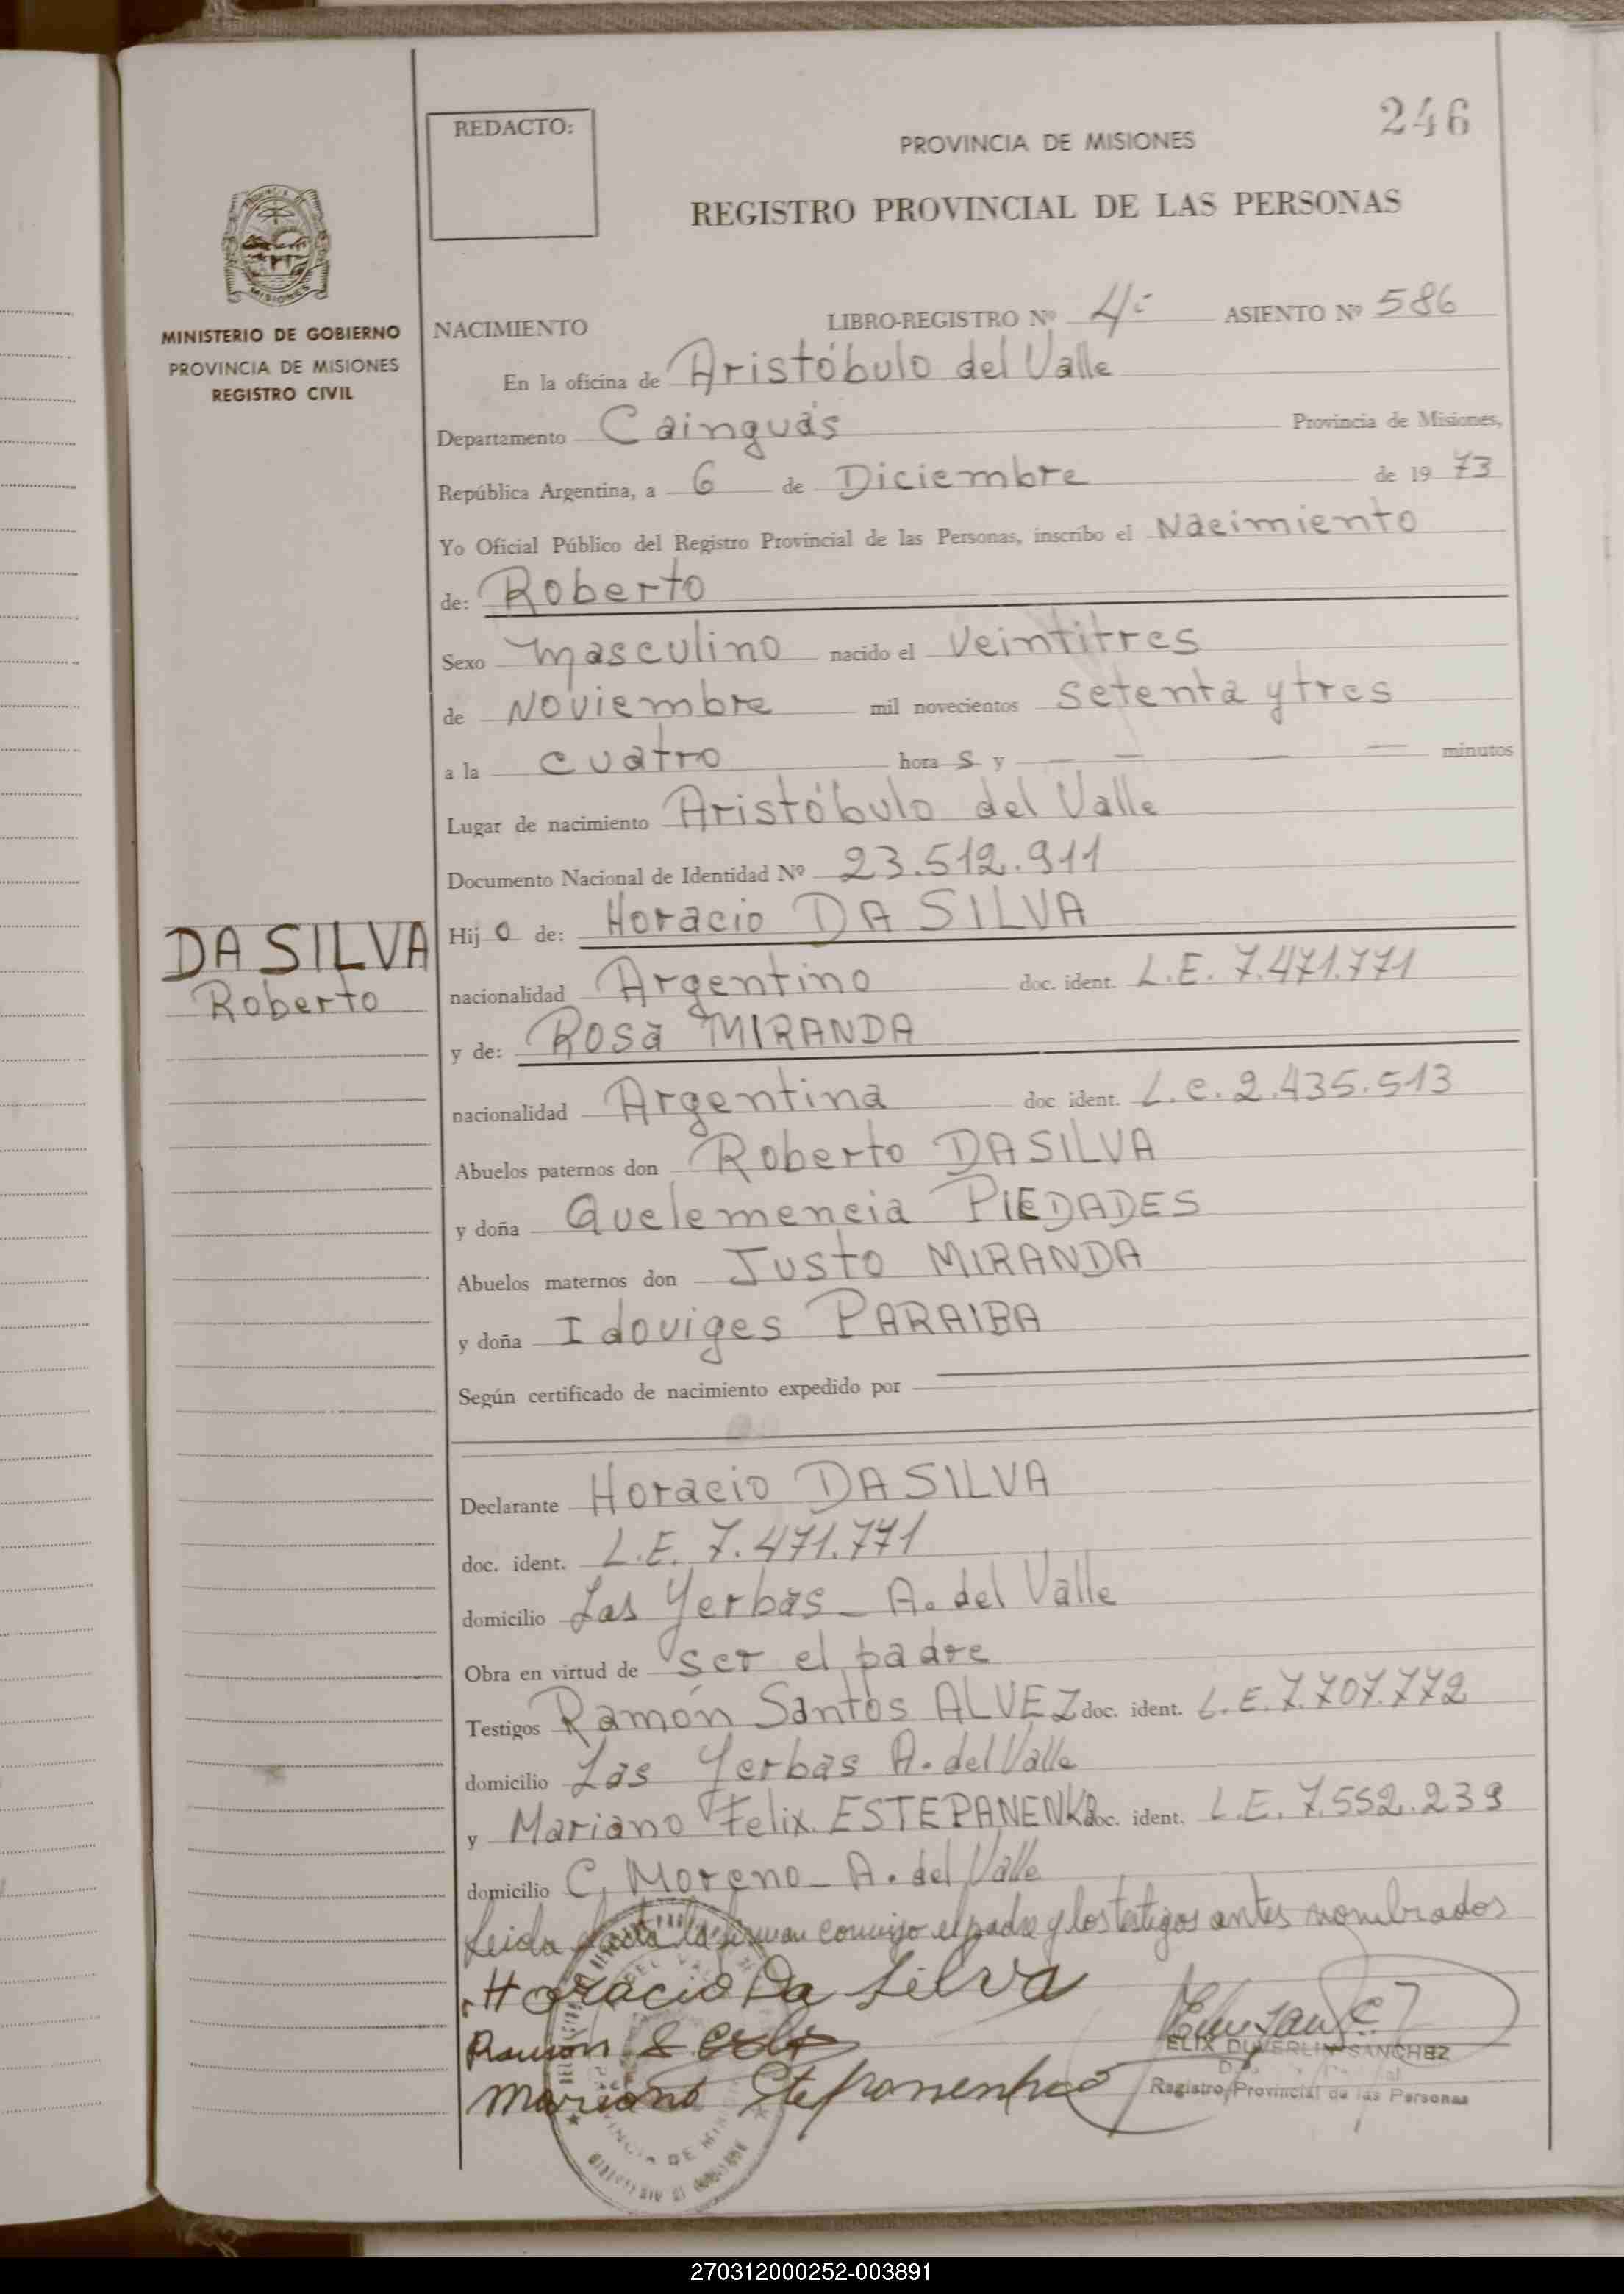 246
REDACTO:
PROVINCIA DE MISIONES
REGISTRO PROVINCIAL DE LAS PERSONAS
MISIONES
MINISTERIO DE GOBIERNO
PROVINCIA DE MISIONES
REGISTRO CIVIL
NACIMIENTO LIBRO-REGISTRO Nº 4º ASIENTO Nº 586
En la oficina de Aristóbulo del Valle
Departamento Cainguás Provincia de Misiones,
República Argentina, a 6 de Diciembre de 1973
Yo Oficial Público del Registro Provincial de las Personas, inscribo el Nacimiento
de: Roberto
Sexo masculino nacido el veintitres
de Noviembre mil novecientos setenta y tres
a la cuatro hora s y — — — — minutos
Lugar de nacimiento Aristóbulo del Valle
Documento Nacional de Identidad Nº 23.512.911
DA SILVA
Roberto
Hijo de: Horacio DA SILVA
nacionalidad Argentino doc. ident. L.E. 7.471.771
y de: Rosa MIRANDA
nacionalidad Argentina doc ident. L.C. 2.435.513
Abuelos paternos don Roberto DA SILVA
y doña Quelemencia PIEDADES
Abuelos maternos don Justo MIRANDA
y doña Idoviges PARAIBA
Según certificado de nacimiento expedido por
Declarante Horacio DA SILVA
doc. ident. L.E. 7.471.771
domicilio Las Yerbas - A. del Valle
Obra en virtud de ser el padre
Testigos Ramón Santos ALVEZ doc. ident. L.E. 7.707.772
domicilio Las Yerbas A. del Valle
y Mariano Felix ESTEPANENKO doc. ident. L.E. 7.552.239
domicilio C. Moreno - A. del Valle
Leida el acta la firman conmigo el padre y los testigos antes nombrados
Horacio Da Silva
Ramon S.
Mariano Steponenko
FELIX DUVERLIN SANCHEZ
Registro Provincial de las Personas
270312000252-003891